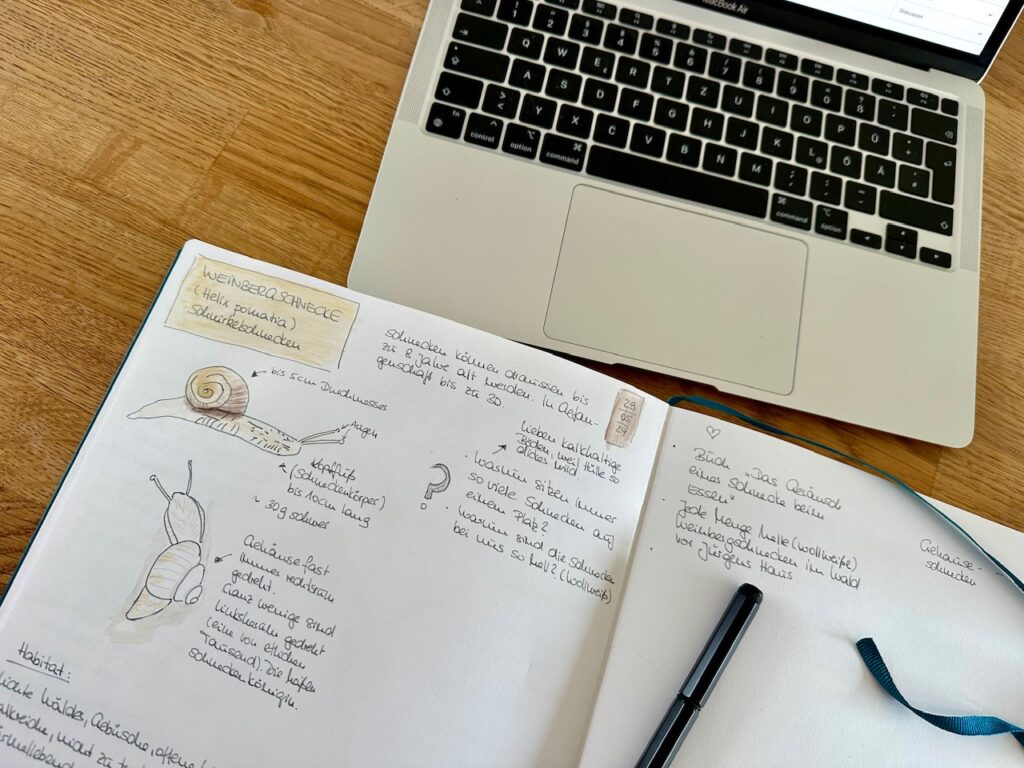 MacBook Air
Diskussion
! 1 2 3 4 5 6 7 8 9 0 ß
Q W E R T Z U I O P Ü +
A S D F G H J K L Ö Ä #
> < Y X C V B N M ; , : . _ -
fn control option command command option
WEINBERGSCHNECKE
(Helix pomatia)
Schnirkelschnecken
bis 5cm Durchmesser
Augen
Kopffuß
(Schneckenkörper)
bis 10cm lang
~ 30g schwer
Gehäuse fast
immer rechtsrum
gedreht.
Ganz wenige sind
linksherum gedreht
(eine von etlichen
Tausend). Die heißen
Schneckenkönigin.
Habitat:
lichte Wälder, Gebüsche, offene
kalkreiche, nicht zu
Schnecken können draussen bis
zu 8 Jahre alt werden. In Gefan-
genschaft bis zu 20.
29
05
24
lieben kalkhaltige
Böden, weil Hülle so
dickes wird
?
· warum sitzen immer
so viele Schnecken auf
einem Platz?
· warum sind die Schnecken
bei uns so hell? (Wollweiß)
♡
· Buch „Das Geräusch
einer Schnecke beim
Essen“
· Jede Menge helle (wollweiße)
Weinbergschnecken im Wald
vor Jürgens Haus
Gehäuse-
schnecken